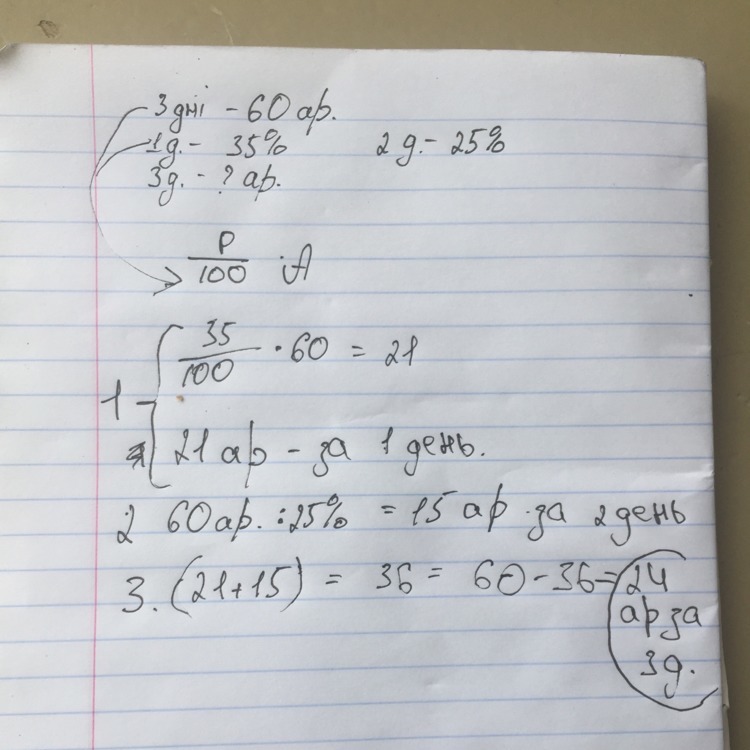 3 дні - 60 ар.
1д. - 35% 2 д. - 25%
3д. - ? ар.
P/100 · A
35/100 · 60 = 21
1 -
21 ар - за 1 день.
2 60 ар. : 25% = 15 ар. за 2 день
3. (21+15) = 36 = 60 - 36 = 24
ар за
3 д.